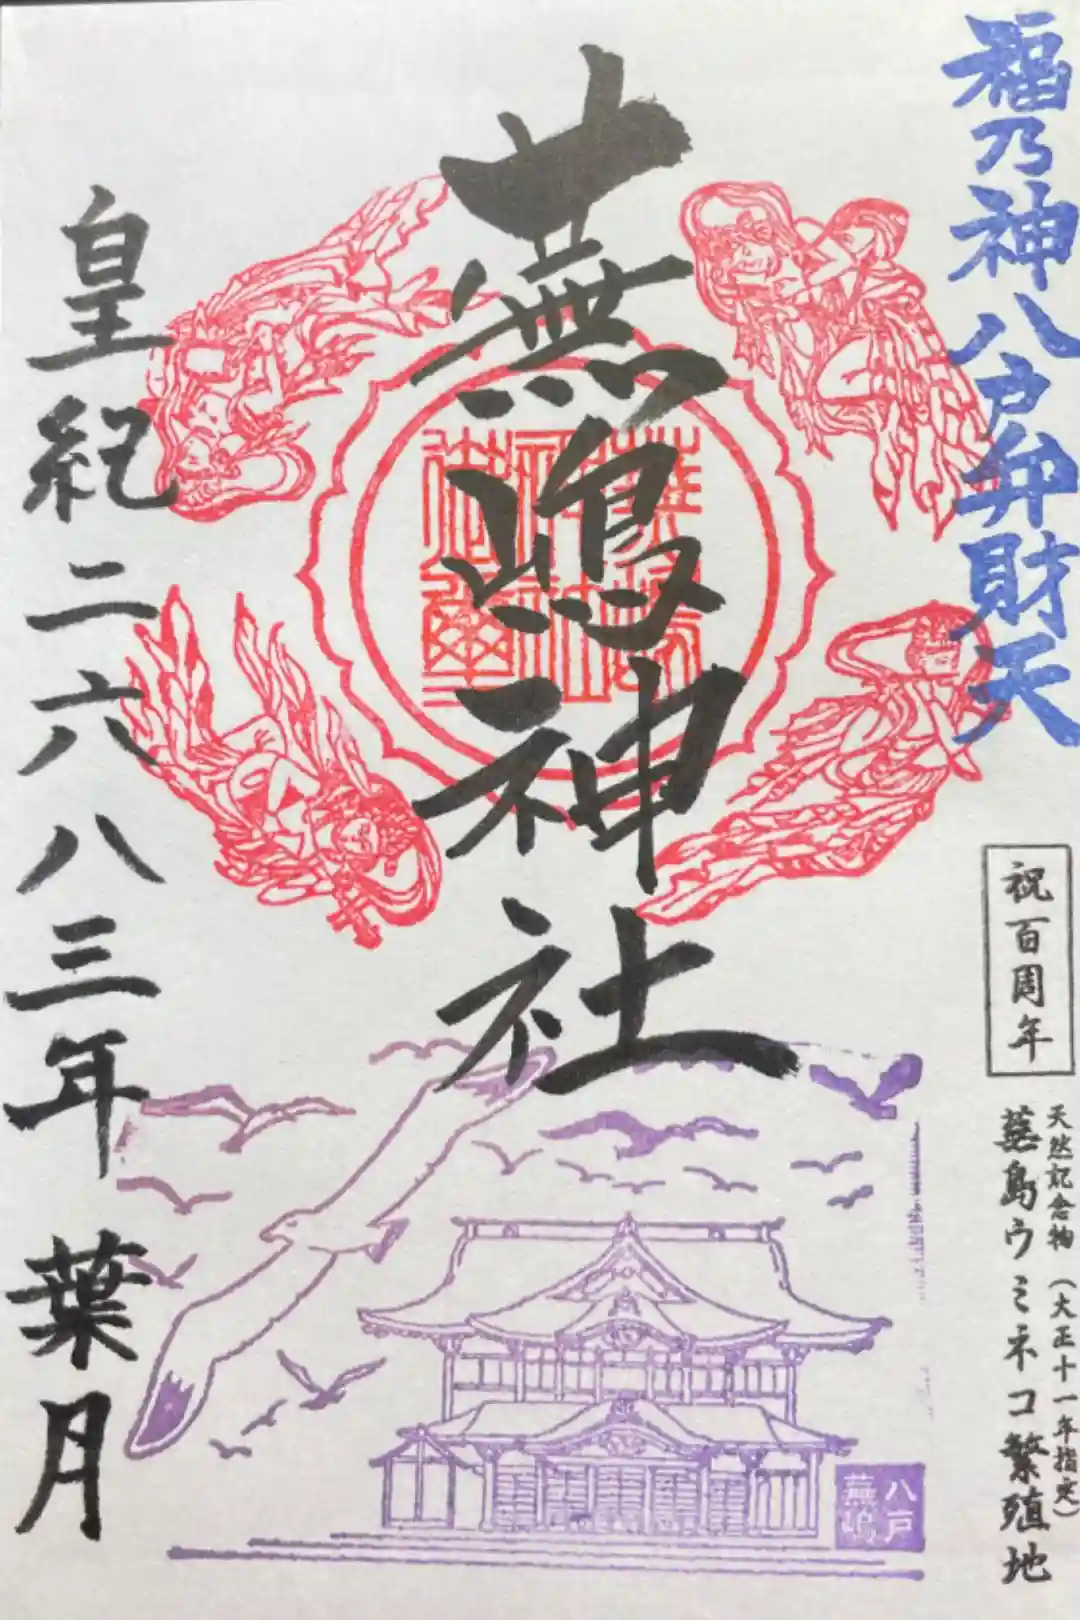 福乃神八戸弁財天
祝百周年
天然記念物（大正十一年指定）
蕪島ウミネコ繁殖地
蕪嶋神社
蕪嶋
神社
御璽
皇紀二六八三年 葉月
八戸
蕪嶋